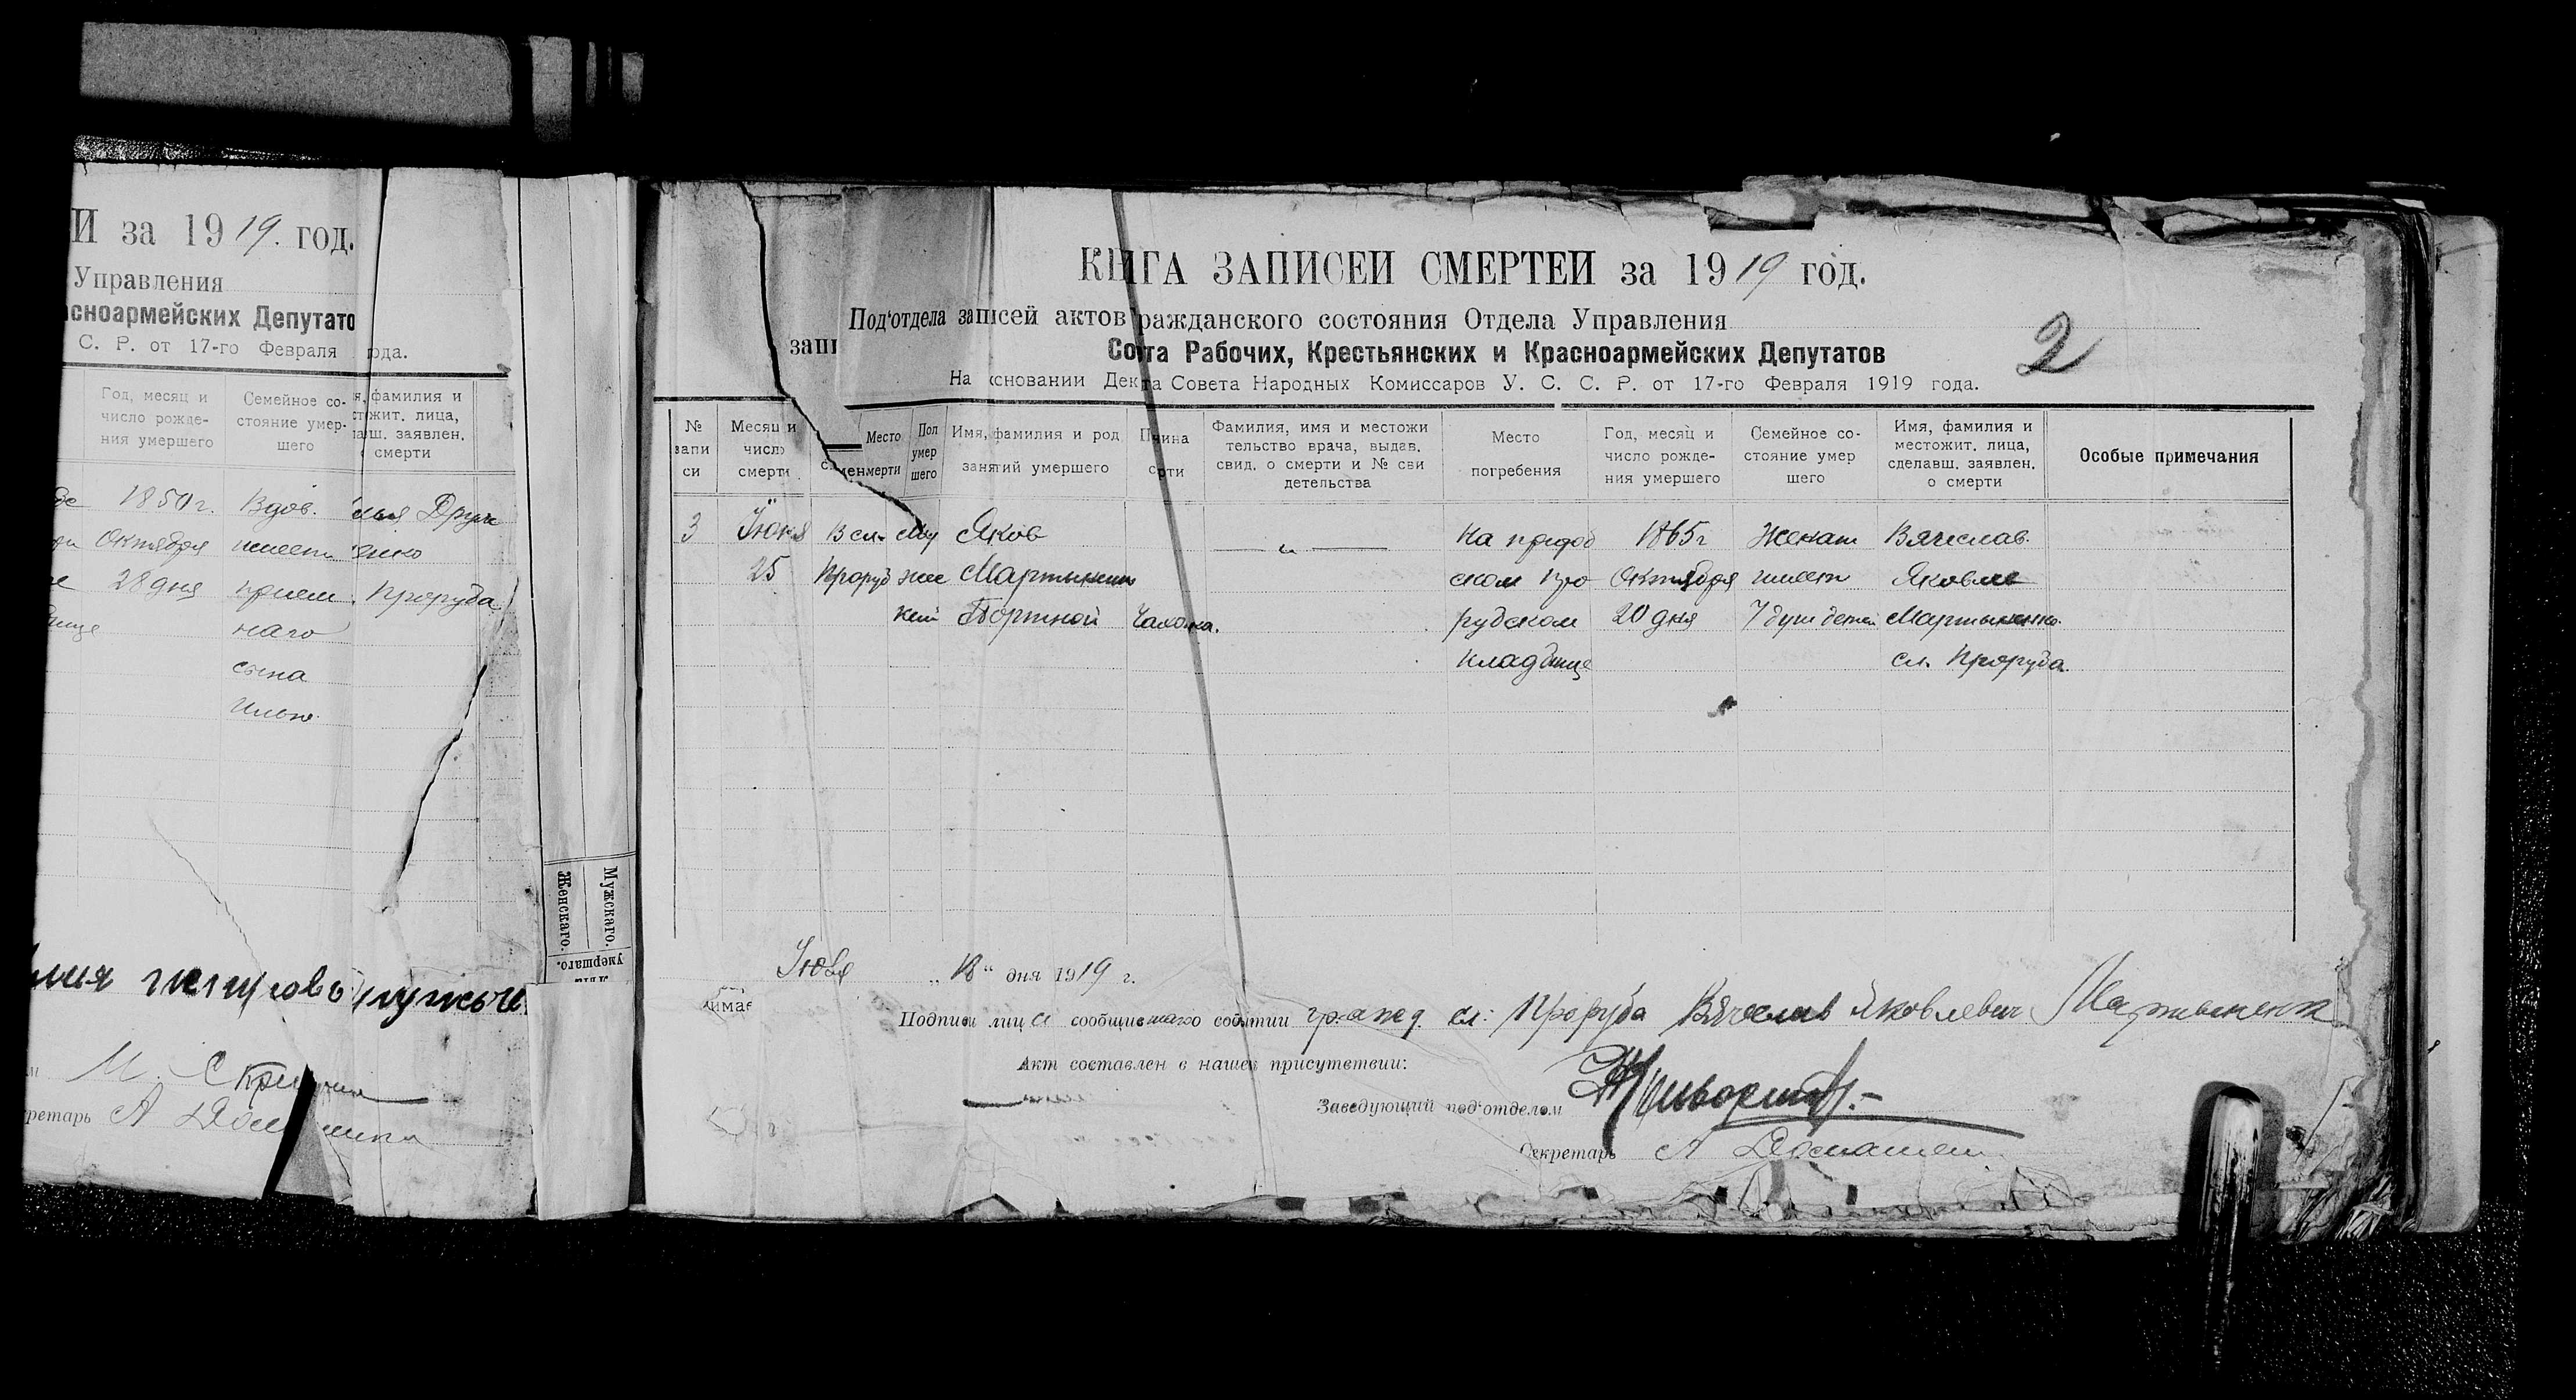 И за 1919. год.
Управления
асноармейских Депутато
С. Р. от 17-го Февраля года.
Год, месяц и число рожде- ния умершего
Семейное со- стояние умер- шего
я, фамилия и стожит. лица, лавш. заявлен. о смерти
1850 г. Вдов.
Октября имеет енко
28 дня прием. Проруба
наго
сына
М. Скри
ретарь А
Женскаго.
Мужскаго.
умершаго.
КНИГА ЗАПИСЕЙ СМЕРТЕЙ за 1919 год.
Под'отдела записей актов гражданского состояния Отдела Управления
запи
2
Совета Рабочих, Крестьянских и Красноармейских Депутатов
На основании Декрета Совета Народных Комиссаров У. С. С. Р. от 17-го Февраля 1919 года.
№ запи си
Месяц и число смерти
Место смерти
Пол умер шего
Имя, фамилия и род занятий умершего
Причина смерти
Фамилия, имя и местожи тельство врача, выдав. свид. о смерти и № сви детельства
Место погребения
Год, месяц и число рожде- ния умершего
Семейное со- стояние умер шего
Имя, фамилия и местожит. лица, сделавш. заявлен. о смерти
Особые примечания
3 Июня В сл. Му Яков — „ — На приход 1865 г Женат Вячеслав.
25 Проруб жес Мартыненко ском про Октября имеет Яковле
кий Портной Чахотка. рубском 20 дня 7 душ детей Мартыненко.
кладбище сл. Проруба.
Июля „18“ дня 1919 г.
Подписи лица сообщившаго событии гражд. сл: Проруба Вячеслав Яковлевич Мартыненко
Акт составлен в нашем присутствии:
Заведующий под'отделом
Секретарь А